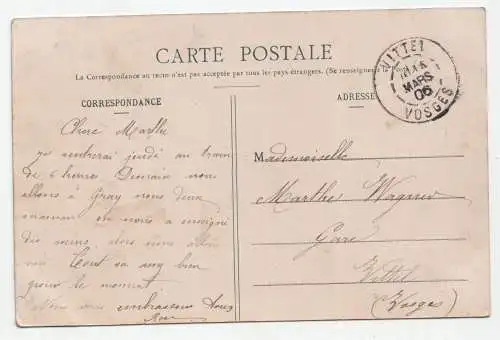 CARTE POSTALE
La Correspondance au recto n'est pas acceptée par tous les pays étrangers. (Se renseigner
CORRESPONDANCE
ADRESSE
VITTEL
MARS
06
VOSGES
Chère Marthe
je rentrerai jeudi au train
de 6 heures Demain nous
allons à Gray nous deux
maman on nous a enseigné
des alors nous allons
voir Tout va bien
pour le moment
Nous vous embrassons tous
Mademoiselle
Marthe Wagner
Gare
Vittel
(Vosges)